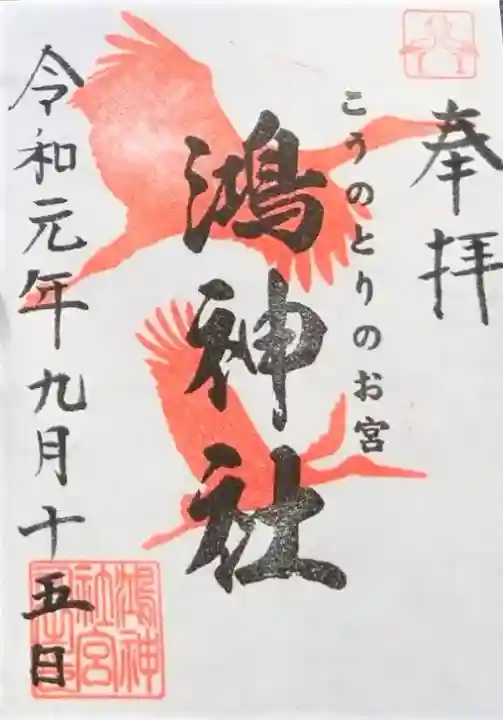 奉拝
こうのとりのお宮
鴻神社
令和元年九月十五日
鴻神社宮